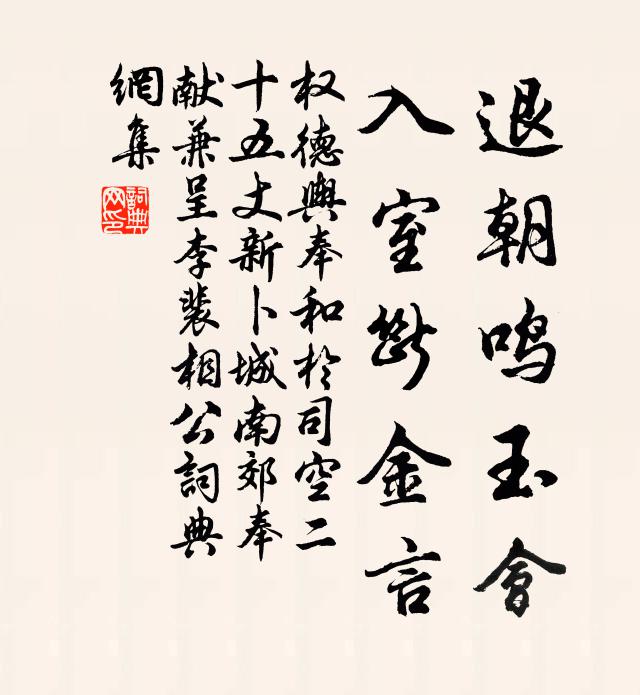 退朝鸣玉會
入室断金言
权德舆奉和於司空二
十五丈新卜城南郊奉
献兼呈李裴相公詞典
網集
詞典
网印